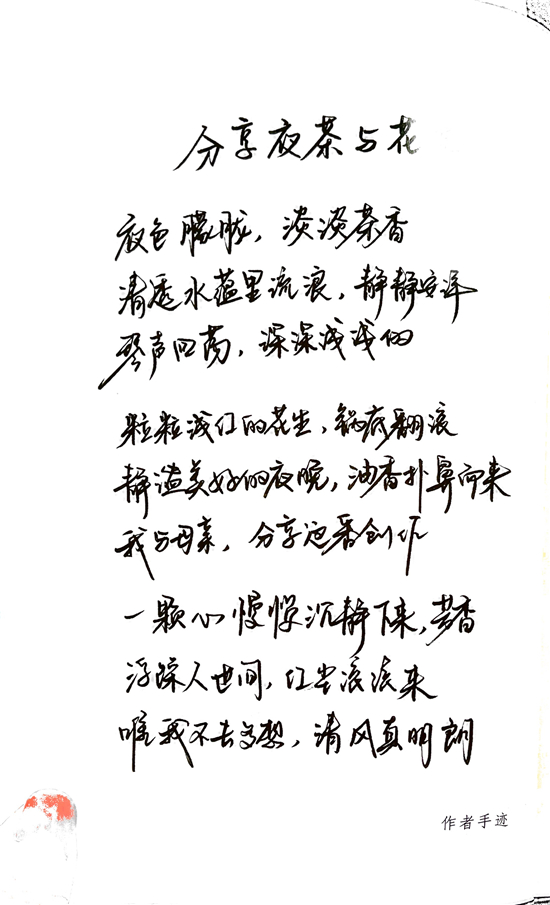 分享夜茶与花
夜色朦胧，淡淡茶香
清透水蕴里流浪，静静安详
琴声回荡，深深浅浅的
粒粒浅红的花生，锅底翻滚
静谧美好的夜晚，油香扑鼻而来
我与母亲，分享这番创作
一颗心慢慢沉静下来，芳香
浮踪人世间，红尘滚滚来
唯我不去多想，清风真明朗
作者手迹